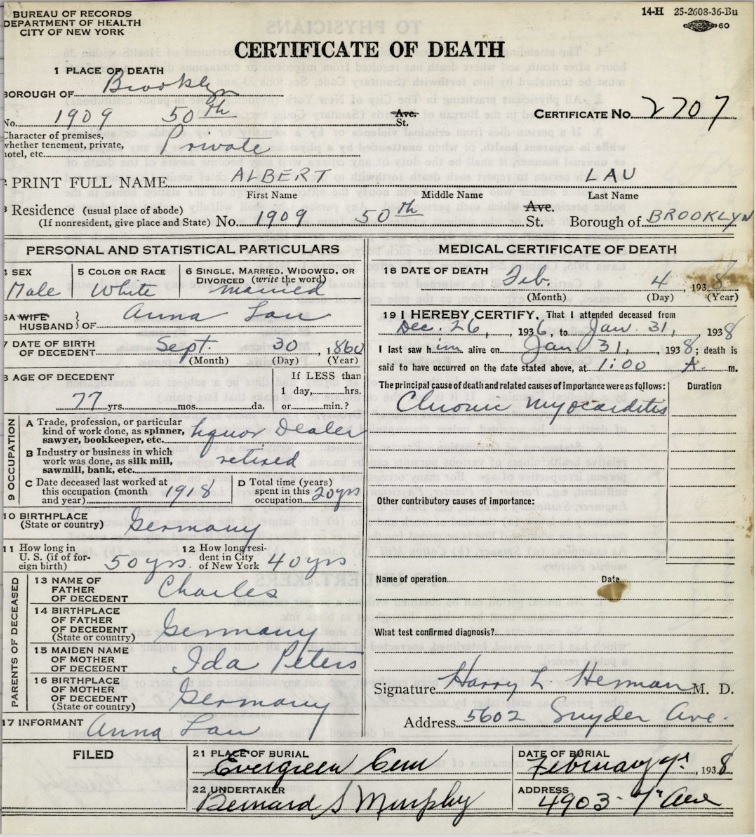 BUREAU OF RECORDS
DEPARTMENT OF HEALTH
CITY OF NEW YORK
14-H 25-2608-36-Bu
60
CERTIFICATE OF DEATH
1 PLACE OF DEATH
BOROUGH OF Brooklyn
No. 1909 50th Ave. St.
CERTIFICATE No. 2707
Character of premises,
whether tenement, private,
hotel, etc. Private
PRINT FULL NAME ALBERT LAU
First Name Middle Name Last Name
Residence (usual place of abode)
(If nonresident, give place and State) No. 1909 50th Ave. St. Borough of BROOKLYN
PERSONAL AND STATISTICAL PARTICULARS
4 SEX Male
5 COLOR OR RACE White
6 SINGLE, MARRIED, WIDOWED, OR
DIVORCED (write the word) married
5A WIFE
HUSBAND } OF Anna Lau
7 DATE OF BIRTH
OF DECEDENT Sept. 30, 1860
(Month) (Day) (Year)
8 AGE OF DECEDENT
77 yrs. mos. da.
If LESS than
1 day, hrs.
or min.?
9 OCCUPATION
A Trade, profession, or particular
kind of work done, as spinner,
sawyer, bookkeeper, etc. liquor Dealer
B Industry or business in which
work was done, as silk mill,
sawmill, bank, etc. retired
C Date deceased last worked at
this occupation (month
and year) 1918
D Total time (years)
spent in this
occupation 20 yrs
10 BIRTHPLACE
(State or country) Germany
11 How long in
U. S. (if of for-
eign birth) 50 yrs.
12 How long resi-
dent in City
of New York 40 yrs
PARENTS OF DECEASED
13 NAME OF
FATHER
OF DECEDENT Charles
14 BIRTHPLACE
OF FATHER
OF DECEDENT
(State or country) Germany
15 MAIDEN NAME
OF MOTHER
OF DECEDENT Ida Peters
16 BIRTHPLACE
OF MOTHER
OF DECEDENT
(State or country) Germany
17 INFORMANT Anna Lau
MEDICAL CERTIFICATE OF DEATH
18 DATE OF DEATH Feb. 4, 1938
(Month) (Day) (Year)
19 I HEREBY CERTIFY, That I attended deceased from
Dec. 26, 1936, to Jan. 31, 1938
I last saw him alive on Jan 31, 1938; death is
said to have occurred on the date stated above, at 1:00 A. m.
The principal cause of death and related causes of importance were as follows: Duration
Chronic myocarditis
Other contributory causes of importance:
Name of operation Date
What test confirmed diagnosis?
Signature Harry L. Herman M. D.
Address 5602 Snyder Ave.
FILED
21 PLACE OF BURIAL
Evergreen Cem
DATE OF BURIAL
February 7, 1938
22 UNDERTAKER
Bernard S Murphy
ADDRESS
4903-7 Ave